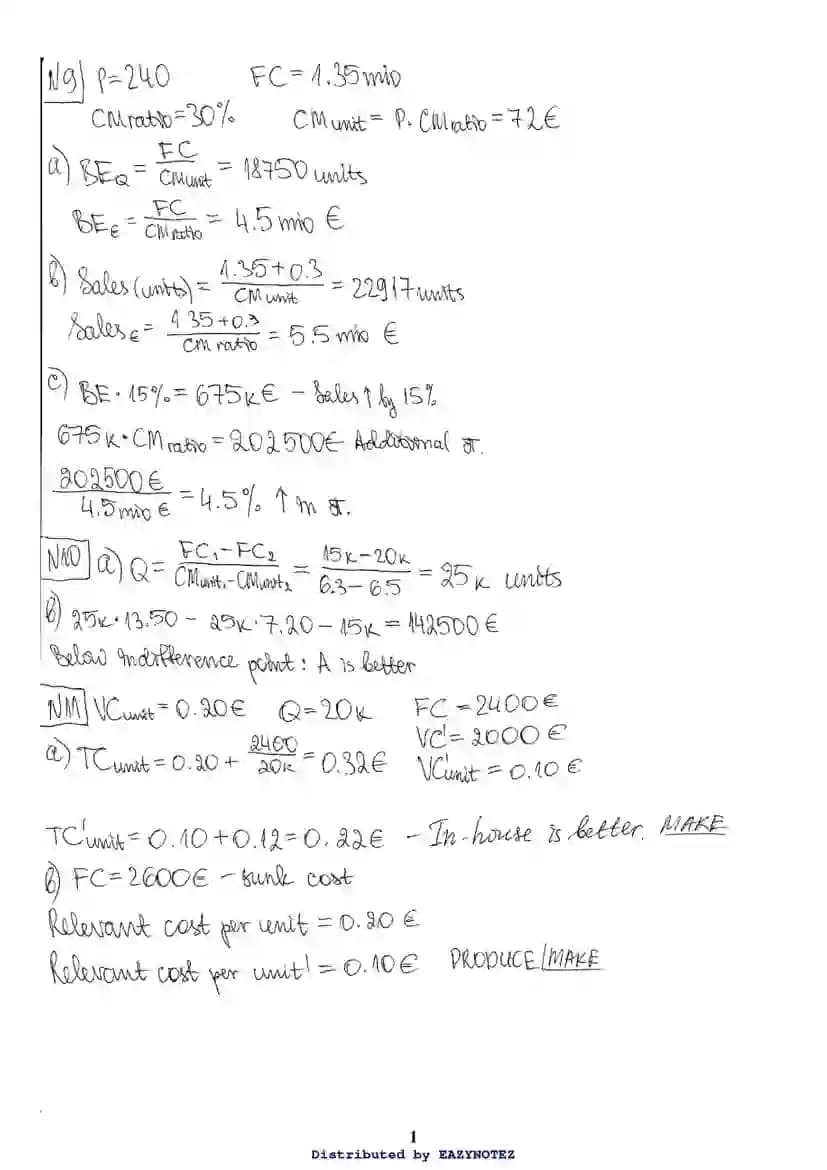 N9 P=240 FC = 1.35 mio
CM ratio = 30% CM unit = P · CM ratio = 72€
a) BE_Q = FC / CM unit = 18750 units
BE_€ = FC / CM ratio = 4.5 mio €
b) Sales (units) = 1.35+0.3 / CM unit = 22917 units
Sales_€ = 1.35+0.3 / CM ratio = 5.5 mio €
c) BE · 15% = 675k€ – Sales ↑ by 15%
675k · CM ratio = 202500€ Additional π.
202500€ / 4.5 mio € = 4.5% ↑ in π.
N10 a) Q = FC₁ – FC₂ / CM unit₁ – CM unit₂ = 15k – 20k / 6.3 – 6.5 = 25k units
b) 25k · 13.50 – 25k · 7.20 – 15k = 142500€
Below indifference point: A is better
N11 VC unit = 0.20€ Q = 20k FC = 2400€
VC' = 2000 €
a) TC unit = 0.20 + 2400 / 20k = 0.32€ VC'unit = 0.10 €
TC'unit = 0.10 + 0.12 = 0.22€ – In-house is better. MAKE
b) FC = 2600€ – sunk cost
Relevant cost per unit = 0.20 €
Relevant cost per unit' = 0.10€ PRODUCE/MAKE
1
Distributed by EAZYNOTEZ